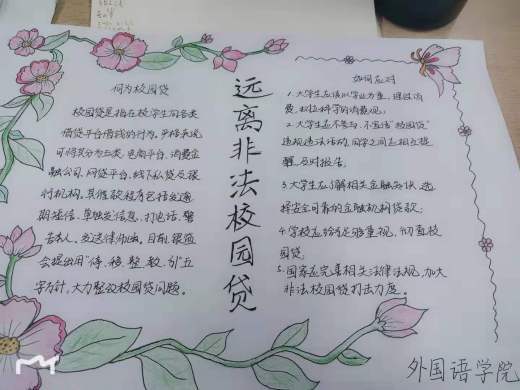 何为校园贷
校园贷是指在校学生向各类
借贷平台借钱的行为。严格来说
可将其分为五类，电商平台、消费金
融公司、网贷平台、线下私贷及银
行机构。其催款程序包括发通
期短信、单独发信息、打电话、警
告本人、发送律师函，目前，银监
会提出用“停、移、整、教、引”五
字方针，大力整改校园贷问题。
远离非法校园贷
如何应对
1.大学生应该以学业为重，理性消
费，树立科学的消费观；
2.大学生应不参与、不宣传“校园贷”
违规违法活动，同学之间互相提
醒，及时报告。
3.大学生应了解相关金融知识，选
择安全可靠的金融机构贷款；
4.学校应给予足够重视，彻查校
园贷。
5.国家应完善相关法律法规，加大
非法校园贷打击力度。
外国语学院